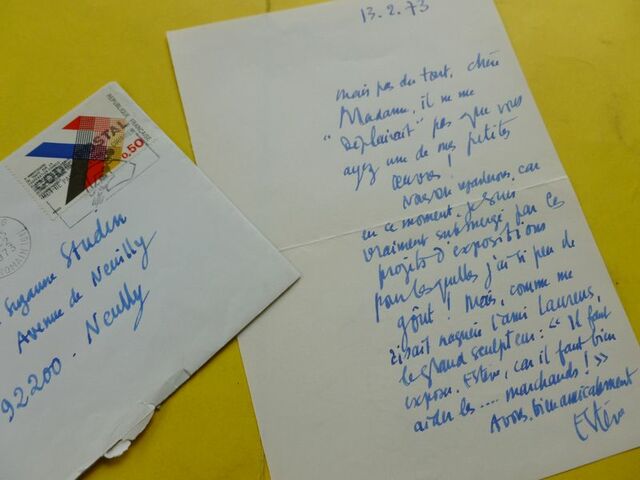 13.2.73
mais pas du tout, chère
Madame, il ne me
"déplairait" pas que vous
ayez une de mes petites
œuvres !
nous en reparlerons, car
en ce moment, je suis
vraiment submergé par ces
projets d'expositions
pour lesquelles j'ai si peu de
goût ! Mais, comme me
disait naguère l'ami Laurens,
le grand sculpteur : « Il faut
exposer, Estève, car il faut bien
aider les .... marchands ! »
A vous, bien amicalement
Estève
REPUBLIQUE FRANCAISE
POSTAL
0.50
CODE
1973
Suzanne Studin
Avenue de Neuilly
92200 - Neuilly